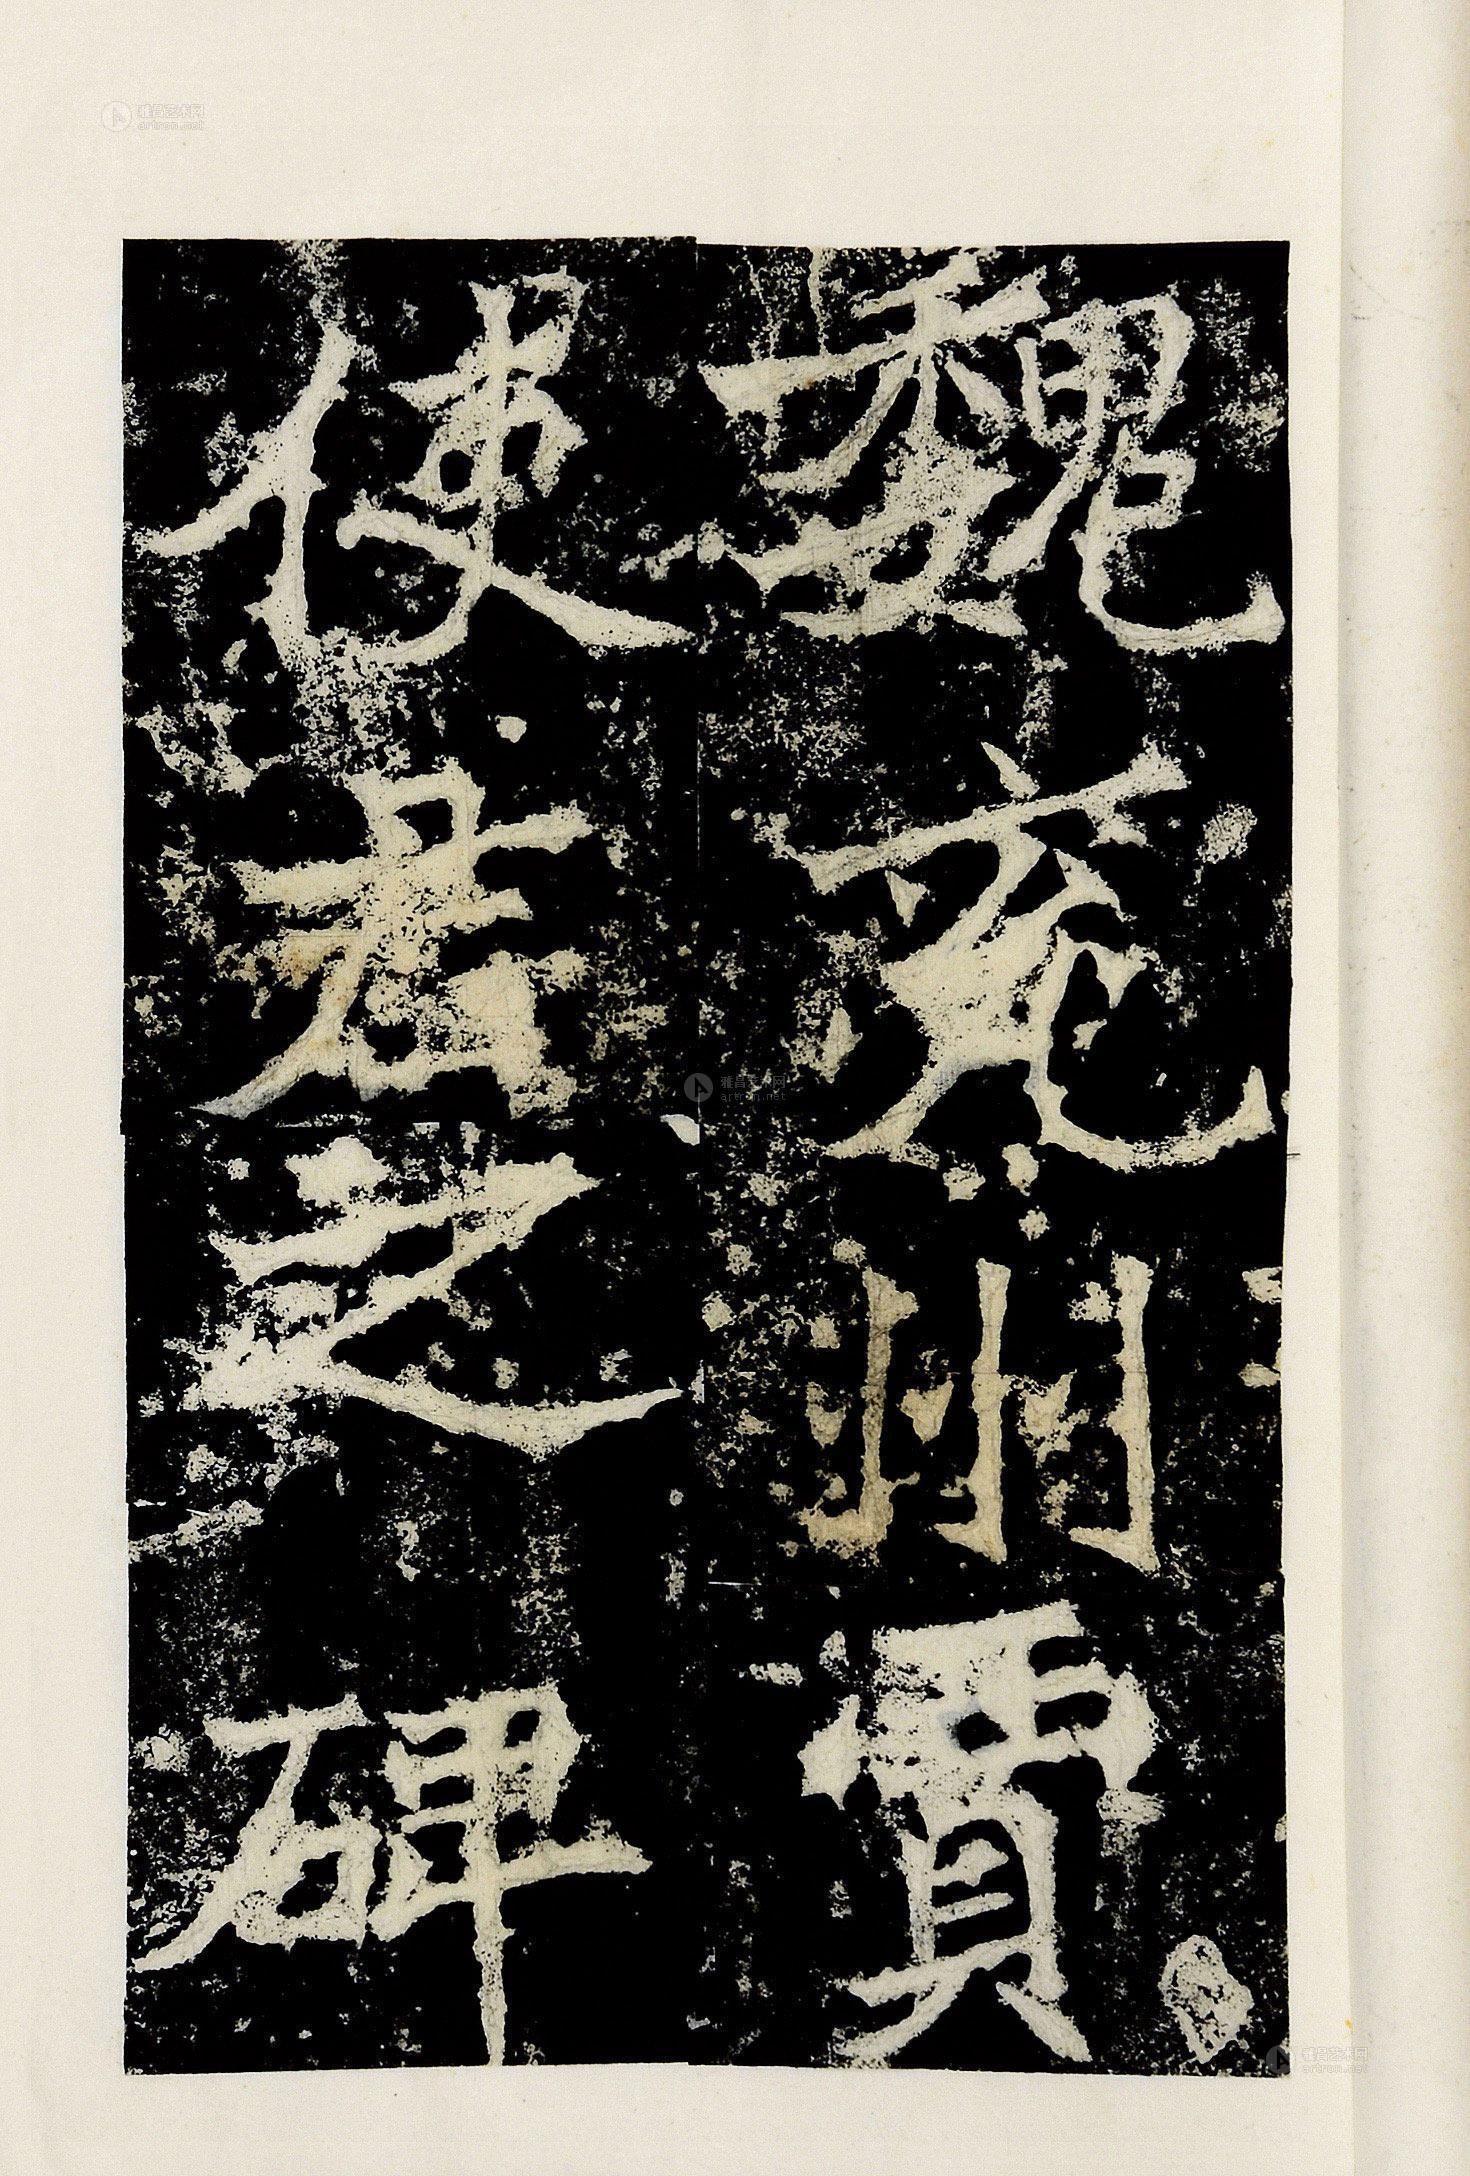 魏兗州賈
使君之碑
雅昌艺术网
artron.net
雅昌艺术网
artron.net
雅昌艺术网
artron.net